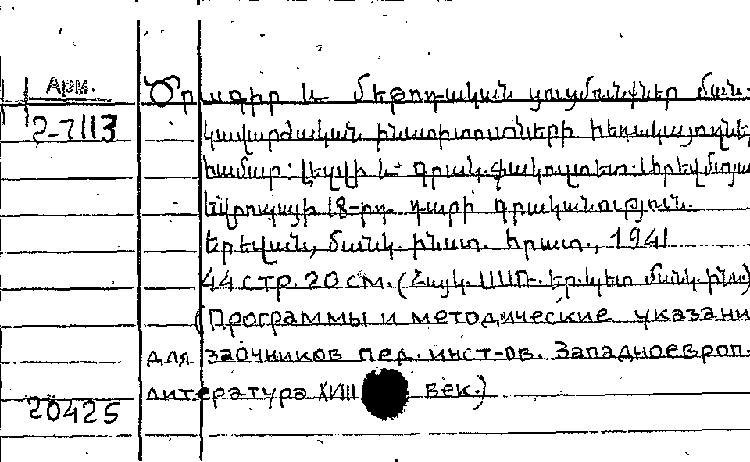 Арм.
2-7113
Ծրագիր և մեթոդական ցուցմունքներ ման-
կավարժական ինստիտուտների հեռակայողնե
համար: Լեզվի և գրակ. ֆակուլտետ: Արևմտյա
եվրոպայի 18-րդ դարի գրականություն.
Երևան, մանկ. ինստ. հրատ., 1941
44 стр. 20 см. (Հայկ. ՍՍՌ. Եր. պետ. մանկ. ինս.)
(Программы и методические указани
для заочников пед. инст-ов. Западноевроп.
литература XVIII век.)
20425